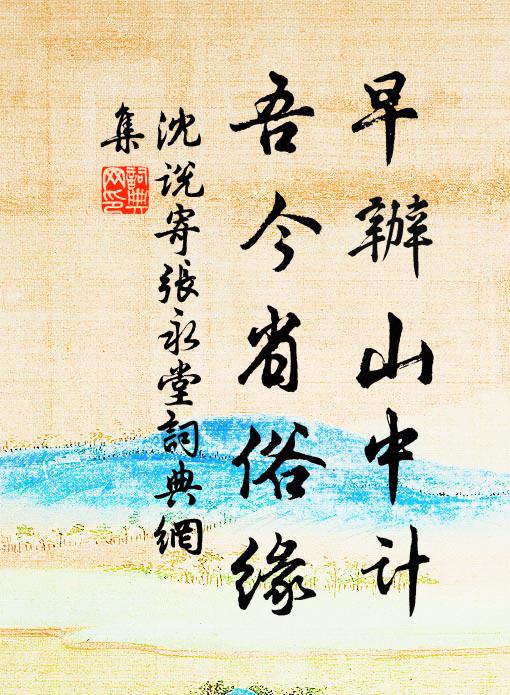 早辦山中计
吾今省俗緣
沈说寄張永堂詞典網
集
詞典網印